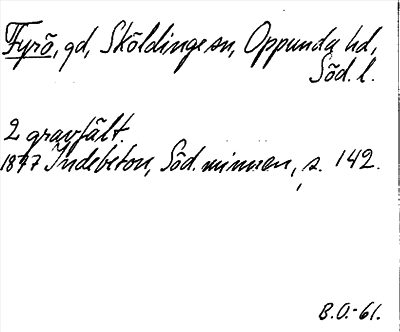 Fyrö, gd, Sköldinge sn, Oppunda hd,
Söd. l.
2 gravfält.
1877 Indebetou, Söd. minnen, s. 142.
B.O.-61.